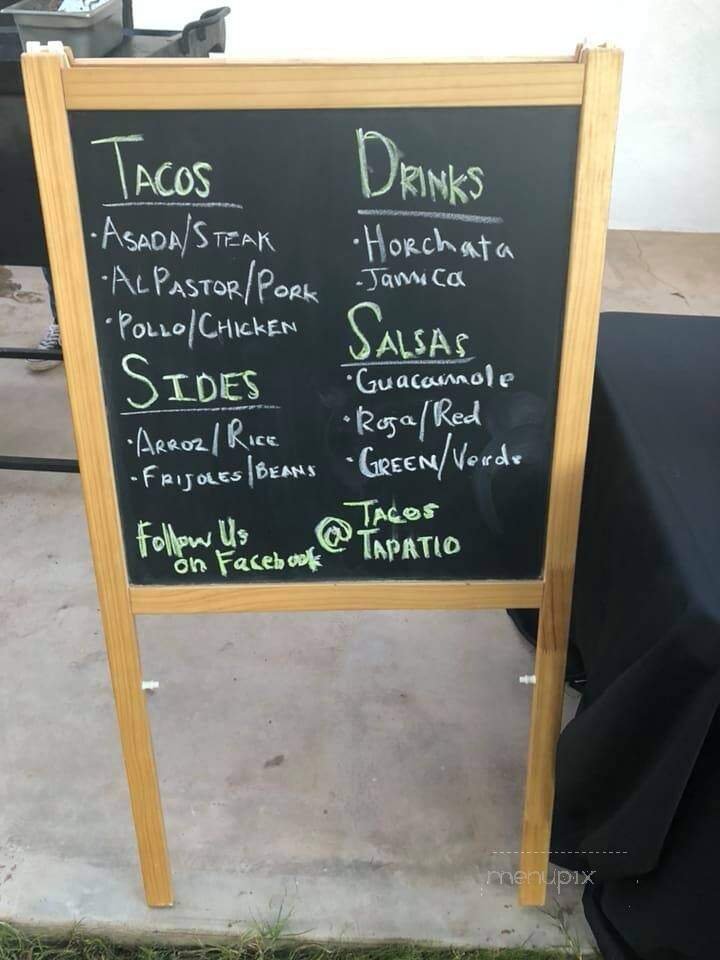 TACOS
·ASADA/STEAK
·AL PASTOR/PORK
·POLLO/CHICKEN
SIDES
·ARROZ/RICE
·FRIJOLES/BEANS
DRINKS
·Horchata
·Jamica
SALSAS
·Guacammole
·Roja/Red
·GREEN/Verde
Follow Us
on Facebook
@ TACOS
TAPATIO
menupix